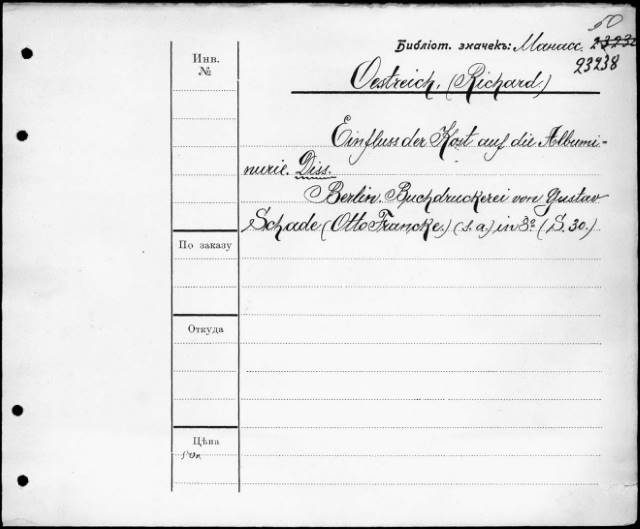 50
Библіот. значекъ: Манасс. 23232
23238
Инв.
№
Oestreich, (Richard.)
Einfluss der Kost auf die Albumi-
nurie. Diss.
Berlin. Buchdruckerei von Gustav
Schade (Otto Francke.) (s.a.) in 8º (S. 30.)
По заказу
Откуда
Цѣна